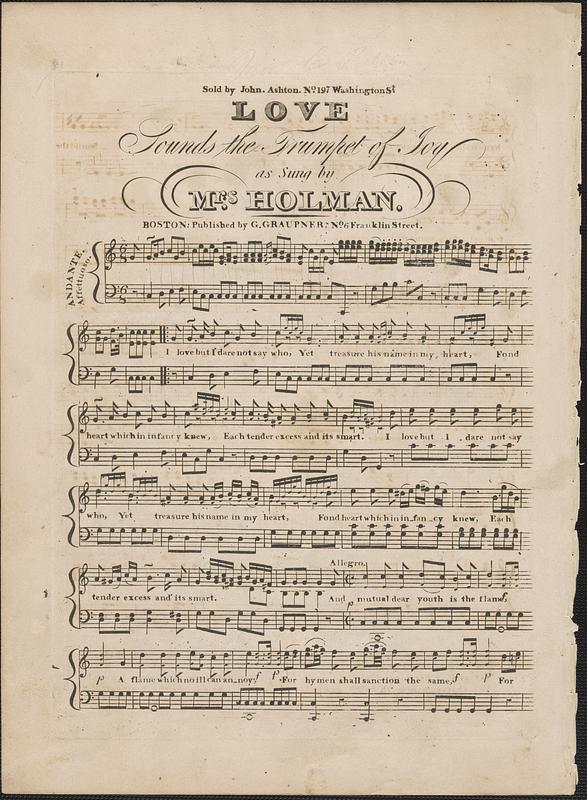 Sold by John. Ashton. No. 197 Washington St.
LOVE
Sounds the Trumpet of Joy
as Sung by
Mrs HOLMAN.
BOSTON: Published by G. GRAUPNER, No. 6 Franklin Street.
ANDANTE.
Affettuoso.
I love but I dare not say who, Yet treasure his name in my heart, Fond
heart which in infancy knew, Each tender excess and its smart. I love but I dare not say
who, Yet treasure his name in my heart, Fond heart which in in_fan_cy knew, Each
Allegro.
tender excess and its smart. And p mutual dear youth is the flame, f
p A flame which no ill can an_noy, f p For hymen shall sanction the same, f p For